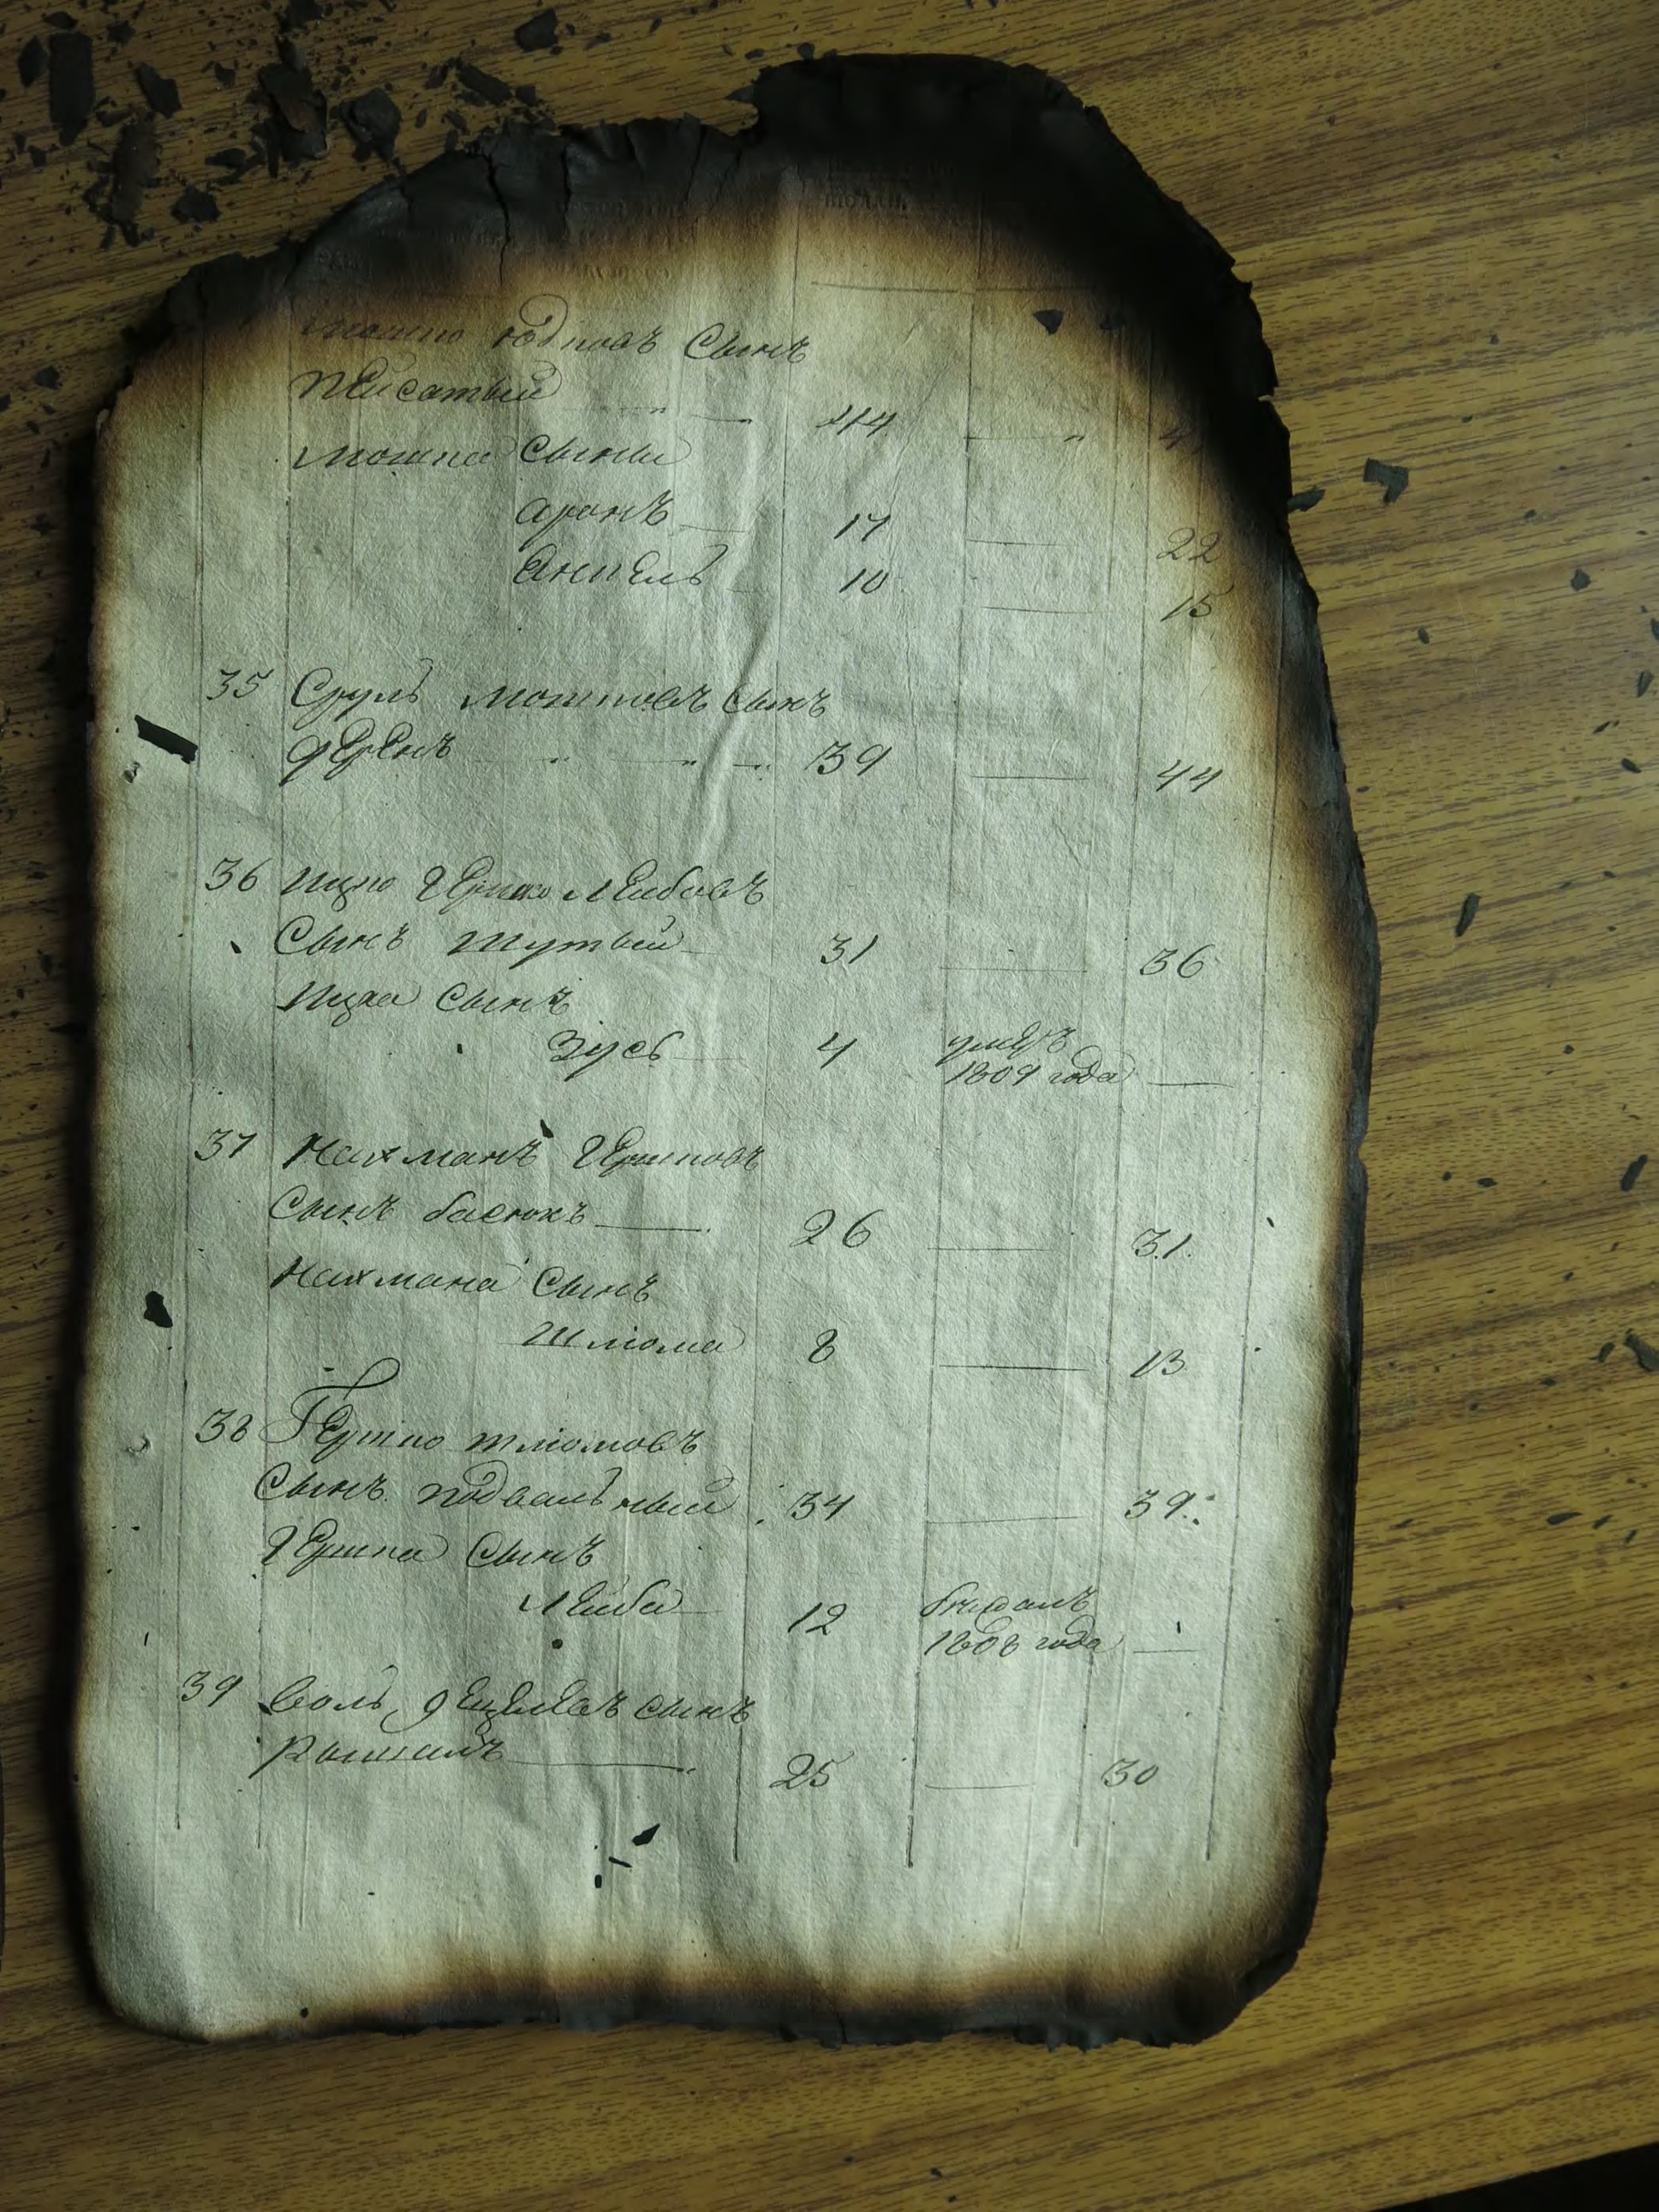 Мошко Юдковъ Сынъ
Пейсатый 44 4
Мошка Сыны
Аронъ 17 22
Анкель 10 15
35 Сруль Мошковъ Сынъ
Ферѣнъ 39 44
36 Ицко Гершко Лейбовъ
Сынъ Шутый 31 36
Ицка Сынъ
Зусь 4 умеръ
1809 года
37 Нахманъ Гершковъ
Сынъ басюкъ 26 31
Нахмана Сынъ
Шліома 8 13
38 Гершко шліомовъ
Сынъ подвальный 34 39
Гершка Сынъ
Лейба 12
1808 года
39 Воль Сынъ
25 30